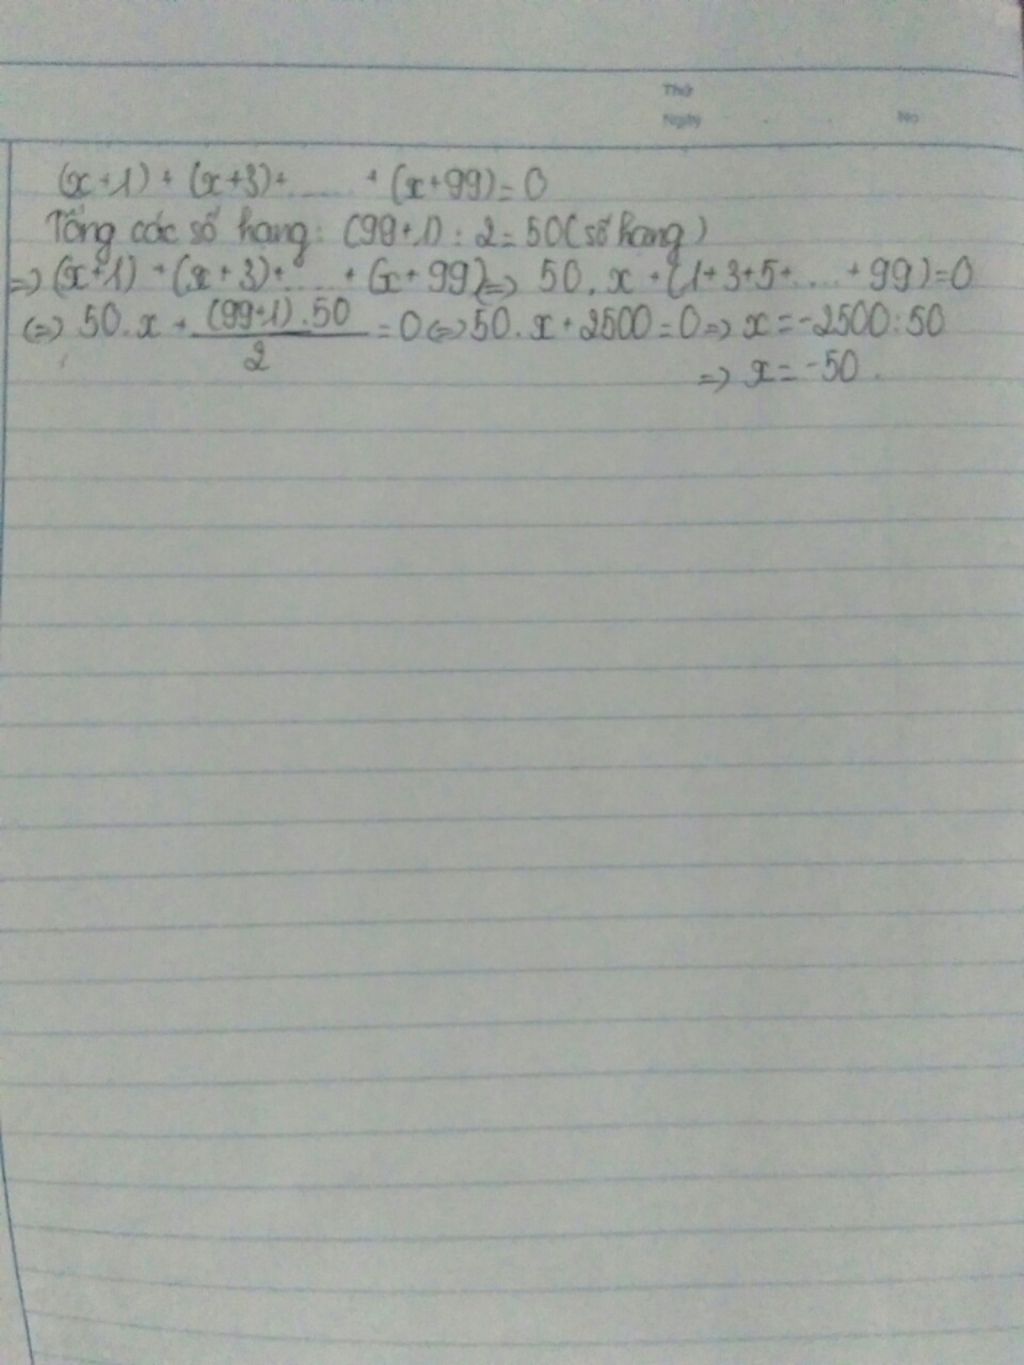 Thứ
Ngày No
(x+1) + (x+3)+.... + (x+99)=0
Tổng các số hạng: (99+1) : 2 = 50 (số hạng)
=> (x+1) + (x+3)+.... + (x+99) <=> 50.x + (1+3+5+.... +99)=0
<=> 50.x + \frac{(99+1).50}{2} = 0 <=> 50.x + 2500 = 0 => x = -2500:50
=> x = -50.